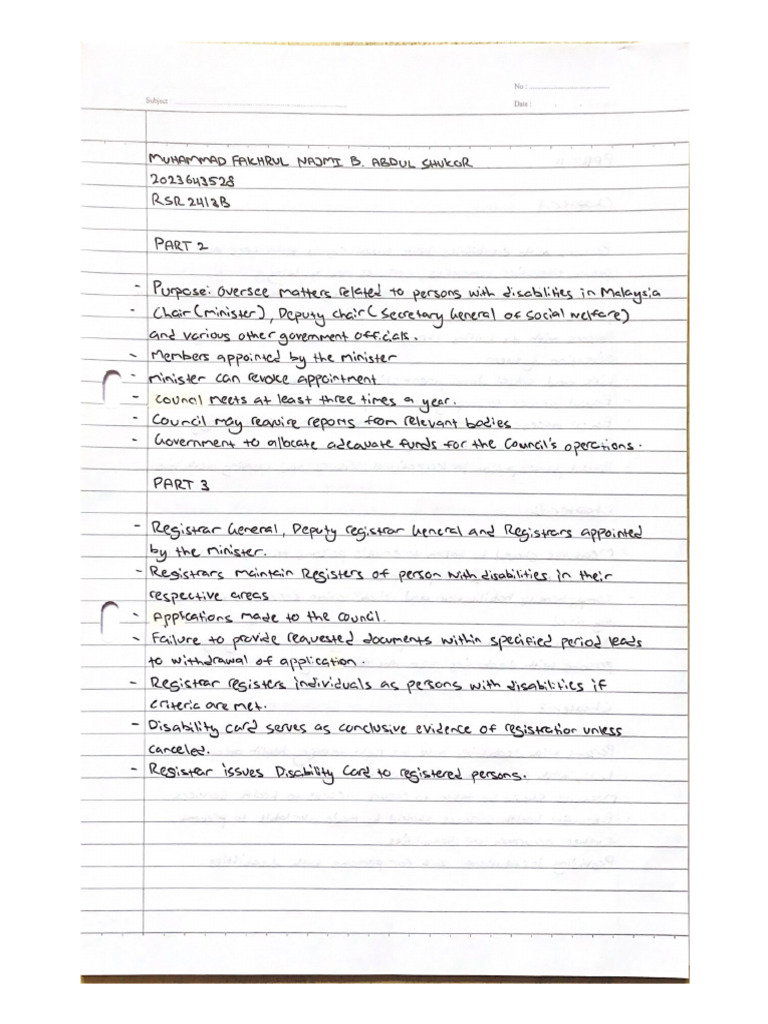 No :
Subject :
Date :
MUHAMMAD FAKHRUL NAJMI B. ABDUL SHUKOR
2023643528
RSR2413B
PART 2
- Purpose: Oversee matters related to persons with disabilities in Malaysia
- Chair (minister), Deputy chair (Secretary General of Social Welfare)
and various other government officials.
- Members appointed by the minister
- minister can revoke appointment
- Council meets at least three times a year.
- Council may require reports from relevant bodies
- Government to allocate adequate funds for the Council's operations.
PART 3
- Registrar General, Deputy registrar General and Registrars appointed
by the minister.
- Registrars maintain Registers of person with disabilities in their
respective areas
- Applications made to the Council.
- Failure to provide requested documents within specified period leads
to withdrawal of application.
- Registrar registers individuals as persons with disabilities if
criteria are met.
- Disability card serves as conclusive evidence of registration unless
canceled.
- Registrar issues Disability Card to registered persons.